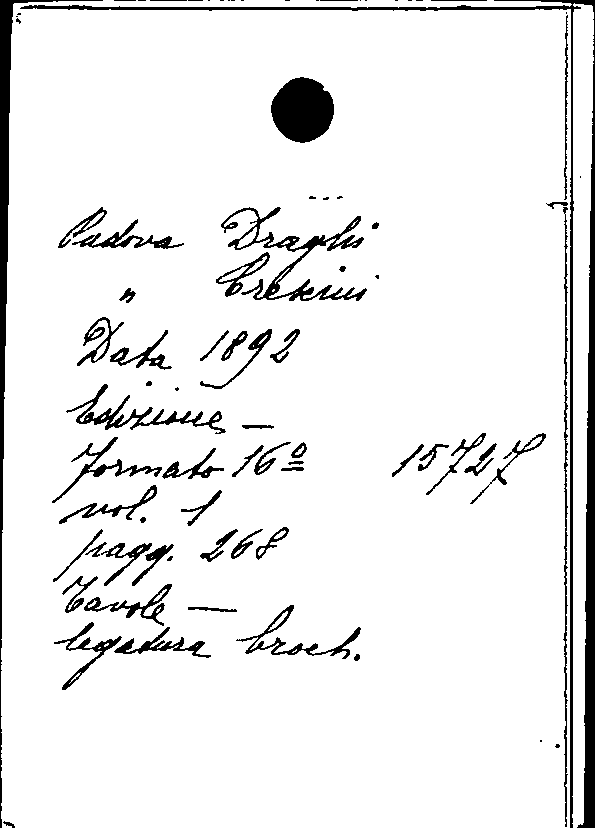 Padova Draghi
" Crescini
Data 1892
Edizione —
formato 16º 15727
vol. 1
pagg. 268
Tavole —
legatura broch.